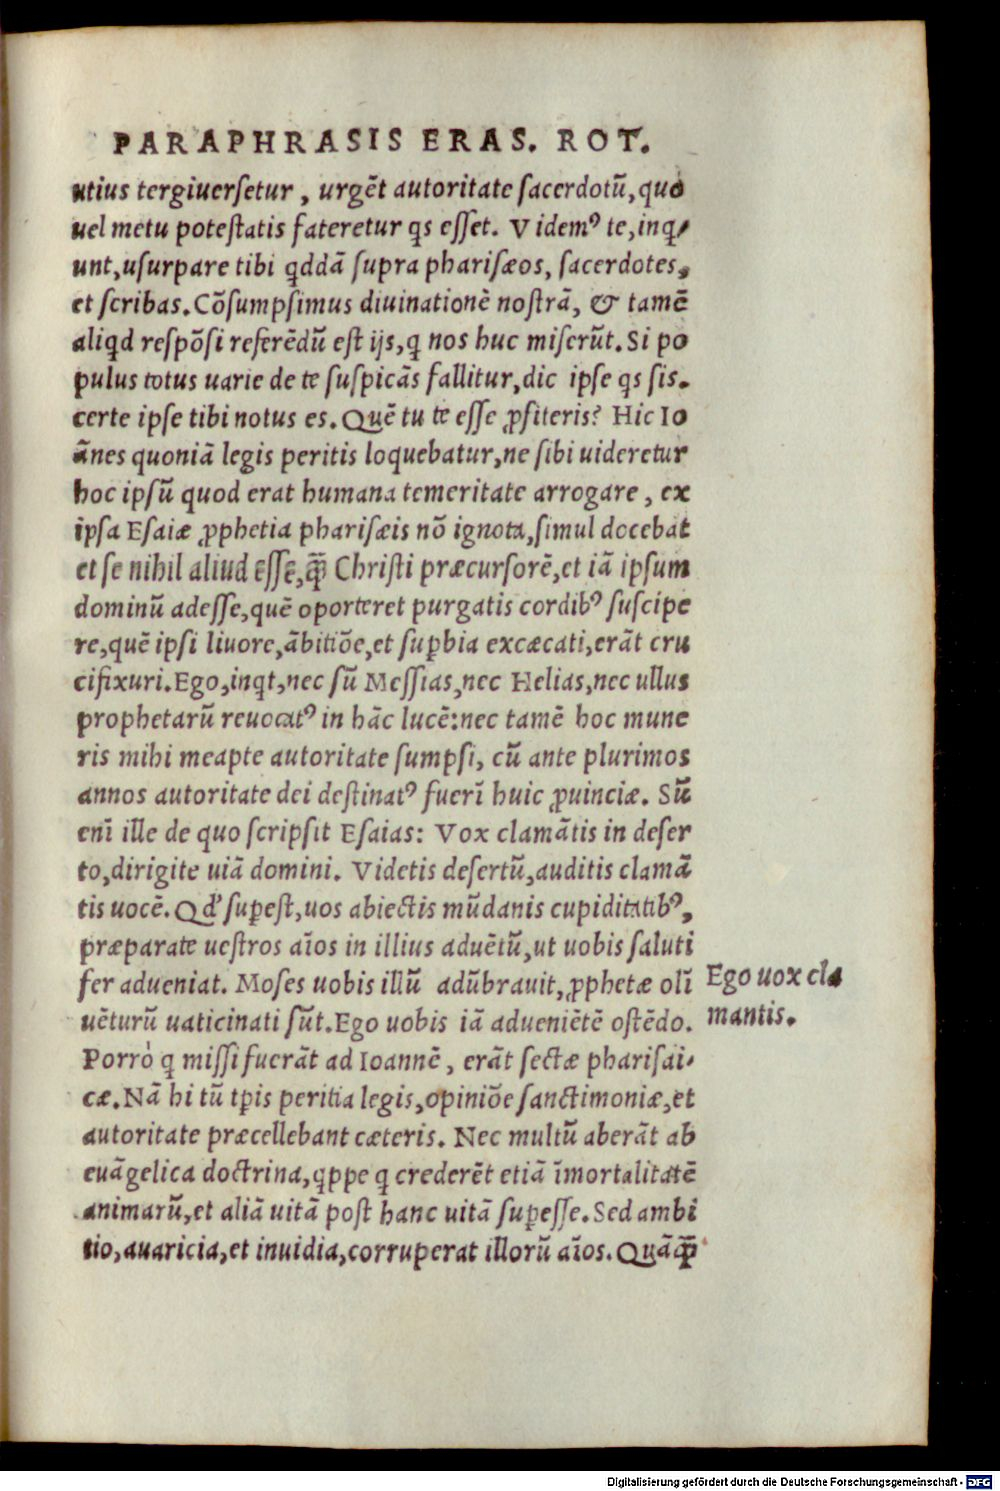 PARAPHRASIS ERAS. ROT.
utius tergiuersetur, urgēt autoritate sacerdotū, quo
uel metu potestatis fateretur qs esset. Videmꝰ te, inq-
unt, usurpare tibi qddā supra pharisæos, sacerdotes,
et scribas. Cōsumpsimus diuinationē nostrā, & tamē
aliqd respōsi referēdū est ijs, q nos huc miserūt. Si po
pulus totus uarie de te suspicās fallitur, dic ipse qs sis.
certe ipse tibi notus es. Quē tu te esse ꝓfiteris? Hic Io
ānes quoniā legis peritis loquebatur, ne sibi uideretur
hoc ipsū quod erat humana temeritate arrogare, ex
ipsa Esaiæ ꝓphetia pharisæis nō ignota, simul docebat
et se nihil aliud esse, q̄ꝫ Christi præcursorē, et iā ipsum
dominū adesse, quē oporteret purgatis cordibꝰ suscipe
re, quē ipsi liuore, ābitiōe, et suꝑbia excæcati, erāt cru
cifixuri. Ego, inqt, nec sū Messias, nec Helias, nec ullus
prophetarū reuocatꝰ in hāc lucē: nec tamē hoc mune
ris mihi meapte autoritate sumpsi, cū ante plurimos
annos autoritate dei destinatꝰ fuerī huic ꝓuinciæ. Sū
enī ille de quo scripsit Esaias: Vox clamātis in deser
to, dirigite uiā domini. Videtis desertū, auditis clamā
tis uocē. Qd' suꝑest, uos abiectis mūdanis cupiditatibꝰ,
præparate uestros aīos in illius aduētū, ut uobis saluti
fer adueniat. Moses uobis illū adūbrauit, ꝓphetæ olī
uēturū uaticinati sūt. Ego uobis iā adueniētē ostēdo.
Ego uox cla
mantis.
Porrò q missi fuerāt ad Ioannē, erāt sectæ pharisai-
cæ. Nā hi tū tꝑis peritia legis, opiniōe sanctimoniæ, et
autoritate præcellebant cæteris. Nec multū aberāt ab
euāgelica doctrina, qppe q crederēt etiā īmortalitatē
animarū, et aliā uitā post hanc uitā suꝑesse. Sed ambi
tio, auaricia, et inuidia, corruperat illorū aīos. Quāq̄ꝫ
Digitalisierung gefördert durch die Deutsche Forschungsgemeinschaft - DFG